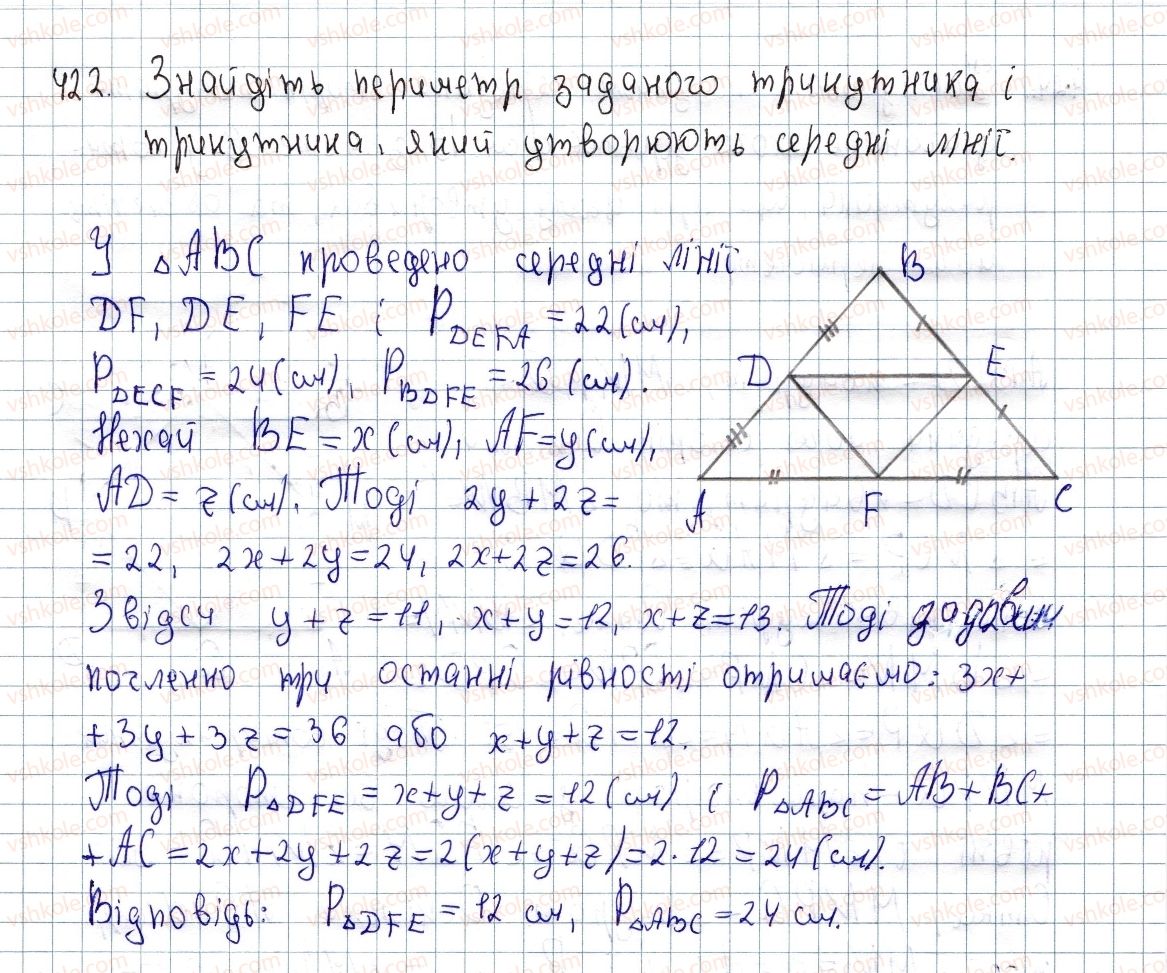 422. Знайдіть периметр заданого трикутника і
трикутника, який утворюють середні лінії.
У △ABC проведено середні лінії
DF, DE, FE і P_DEFA = 22 (см),
P_DECF = 24 (см), P_BDFE = 26 (см).
Нехай BE = x (см), AF = y (см),
AD = z (см). Тоді 2y + 2z =
= 22, 2x + 2y = 24, 2x + 2z = 26.
Звідси y + z = 11, x + y = 12, x + z = 13. Тоді
почленно три останні рівності отримаємо: 3x +
+ 3y + 3z = 36 або x + y + z = 12.
Тоді P_△DFE = x + y + z = 12 (см) і P_△ABC = AB + BC +
+ AC = 2x + 2y + 2z = 2(x + y + z) = 2·12 = 24 (см).
Відповідь: P_△DFE = 12 см, P_△ABC = 24 см.
B
D
E
A
F
C
vshkole.com